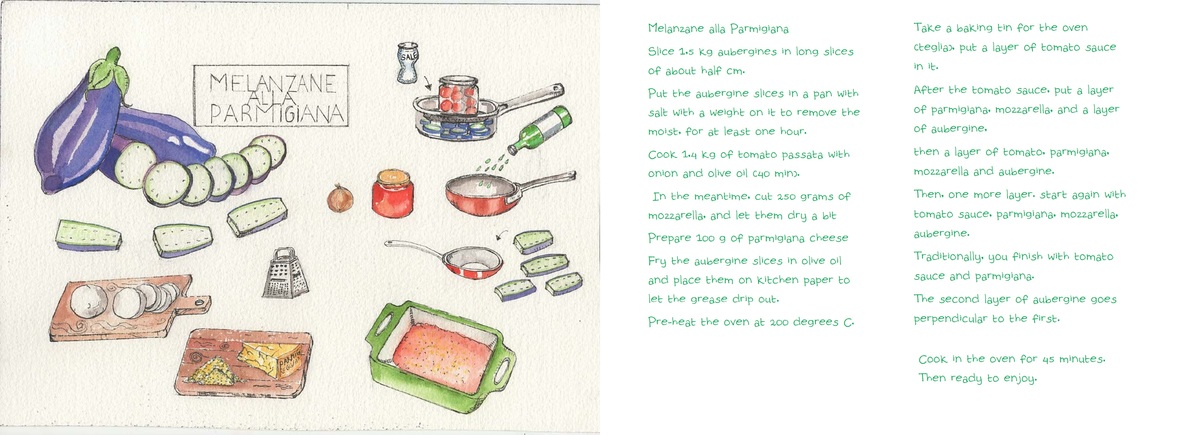 MELANZANE
ALLA
PARMIGIANA
SALE
Melanzane alla Parmigiana
Slice 1.5 kg aubergines in long slices
of about half cm.
Put the aubergine slices in a pan with
salt with a weight on it to remove the
moist, for at least one hour.
Cook 1.4 kg of tomato passata with
onion and olive oil (40 min).
In the meantime, cut 250 grams of
mozzarella, and let them dry a bit
Prepare 100 g of parmigiana cheese
Fry the aubergine slices in olive oil
and place them on kitchen paper to
let the grease drip out.
Pre-heat the oven at 200 degrees C.
Take a baking tin for the oven
(teglia), put a layer of tomato sauce
in it.
After the tomato sauce, put a layer
of parmigiana, mozzarella, and a layer
of aubergine.
then a layer of tomato, parmigiana,
mozzarella and aubergine.
Then, one more layer, start again with
tomato sauce, parmigiana, mozzarella,
aubergine.
Traditionally, you finish with tomato
sauce and parmigiana.
The second layer of aubergine goes
perpendicular to the first.
Cook in the oven for 45 minutes.
Then ready to enjoy.